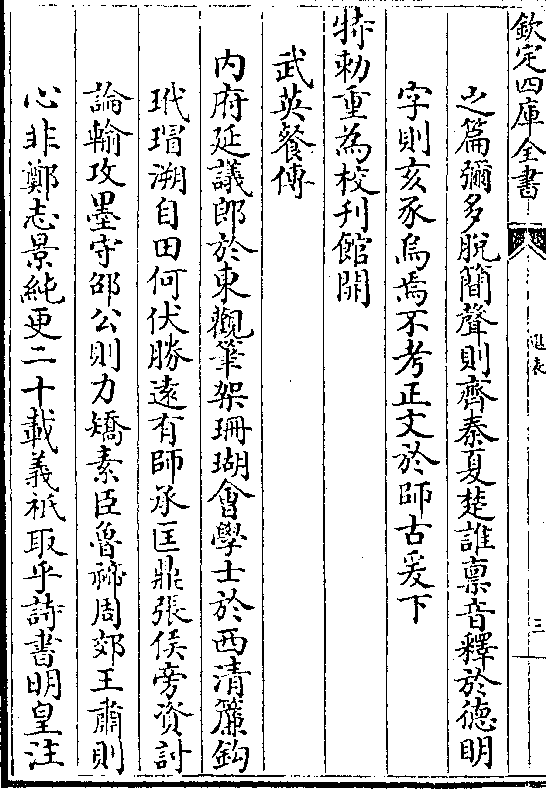 欽定四庫全書
進表
三
之篇彌多脫簡聲則齊秦夏楚誰禀音釋於德明
字則亥豕烏焉不考正文於師古爰下
特勅重為校刋館開
武英餐傳
内府延議郎於東觀筆架珊瑚會學士於西清簾鈎
玳瑁溯自田何伏勝遠有師承匡鼎張侯旁資討
論輸攻墨守邵公則力矯素臣魯禘周郊王肅則
心非鄭志景純更二十載義祇取乎詩書明皇注